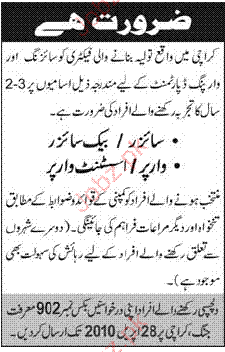 ضرورت ہے
کراچی میں واقع تولیہ بنانے والی فیکٹری کو سائزنگ اور
وارپنگ ڈپارٹمنٹ کے لیے مندرجہ ذیل اسامیوں پر 3-2
سال کا تجربہ رکھنے والے افراد کی ضرورت ہے۔
• سائزر / بیک سائزر
• وارپر / اسسٹنٹ وارپر
منتخب ہونے والے افراد کو کمپنی کے قوائد و ضوابط کے مطابق
تنخواہ اور دیگر مراعات فراہم کی جائینگی۔ (دوسرے شہروں
سے تعلق رکھنے والے افراد کے لیے رہائش کی سہولت بھی
موجود ہے)۔
دلچسپی رکھنے والے افراد اپنی درخواستیں بکس نمبر 902 معرفت
جنگ، کراچی پر 28 اپریل 2010 تک ارسال کردیں۔